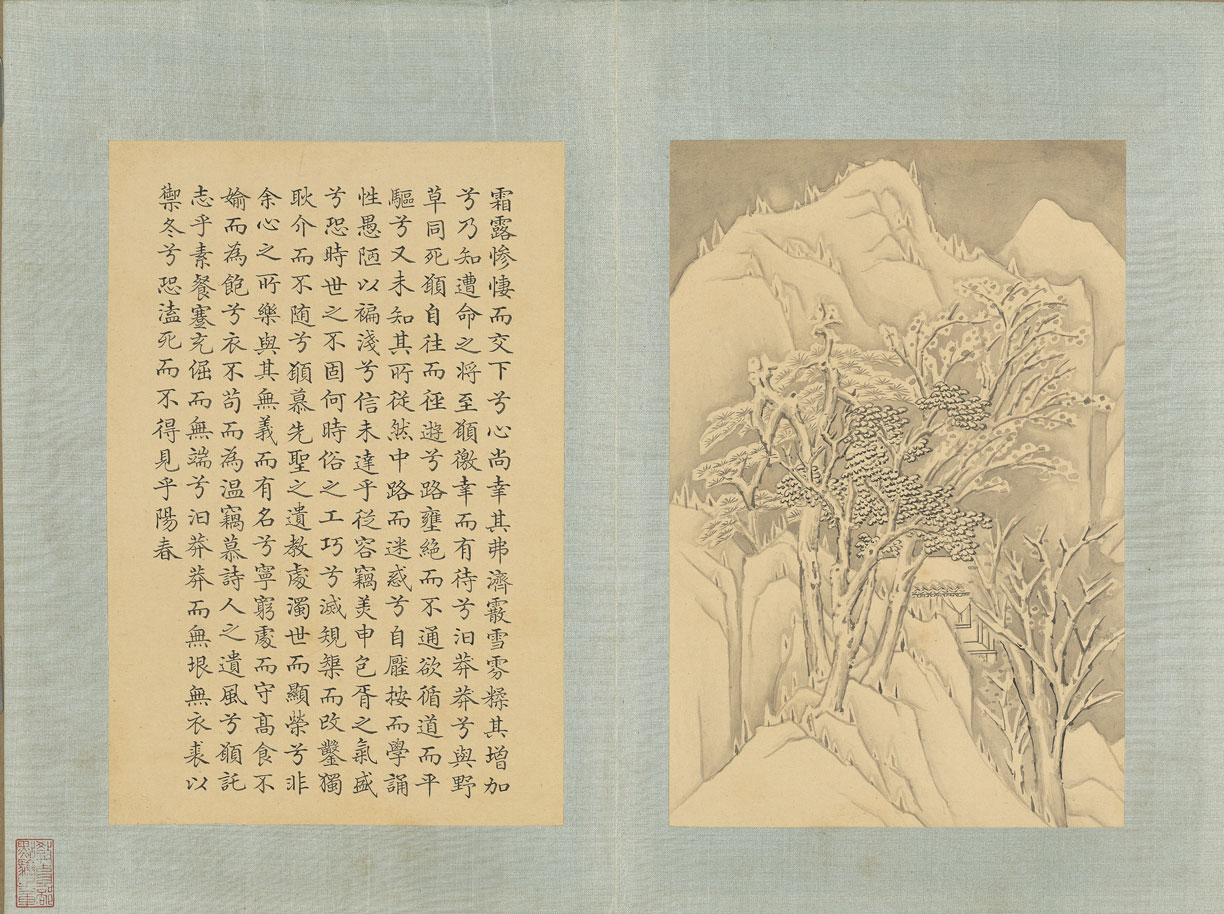 霜露慘悽而交下兮心尚幸其弗濟霰雪雰糅其增加
兮乃知遭命之將至願徼幸而有待兮汩莽莽兮與野
草同死願自往而徑遊兮路壅絕而不通欲循道而平
驅兮又未知其所從然中路而迷惑兮自壓按而學誦
性愚陋以褊淺兮信未達乎從容竊美申包胥之氣盛
兮恐時世之不固何時俗之工巧兮滅規榘而改鑿獨
耿介而不随兮願慕先聖之遺教處濁世而顯榮兮非
余心之所樂與其無義而有名兮寧窮處而守高食不
媮而為飽兮衣不苟而為温竊慕詩人之遺風兮願託
志乎素餐蹇充倔而無端兮汩莽莽而無垠無衣裘以
禦冬兮恐溘死而不得見乎陽春